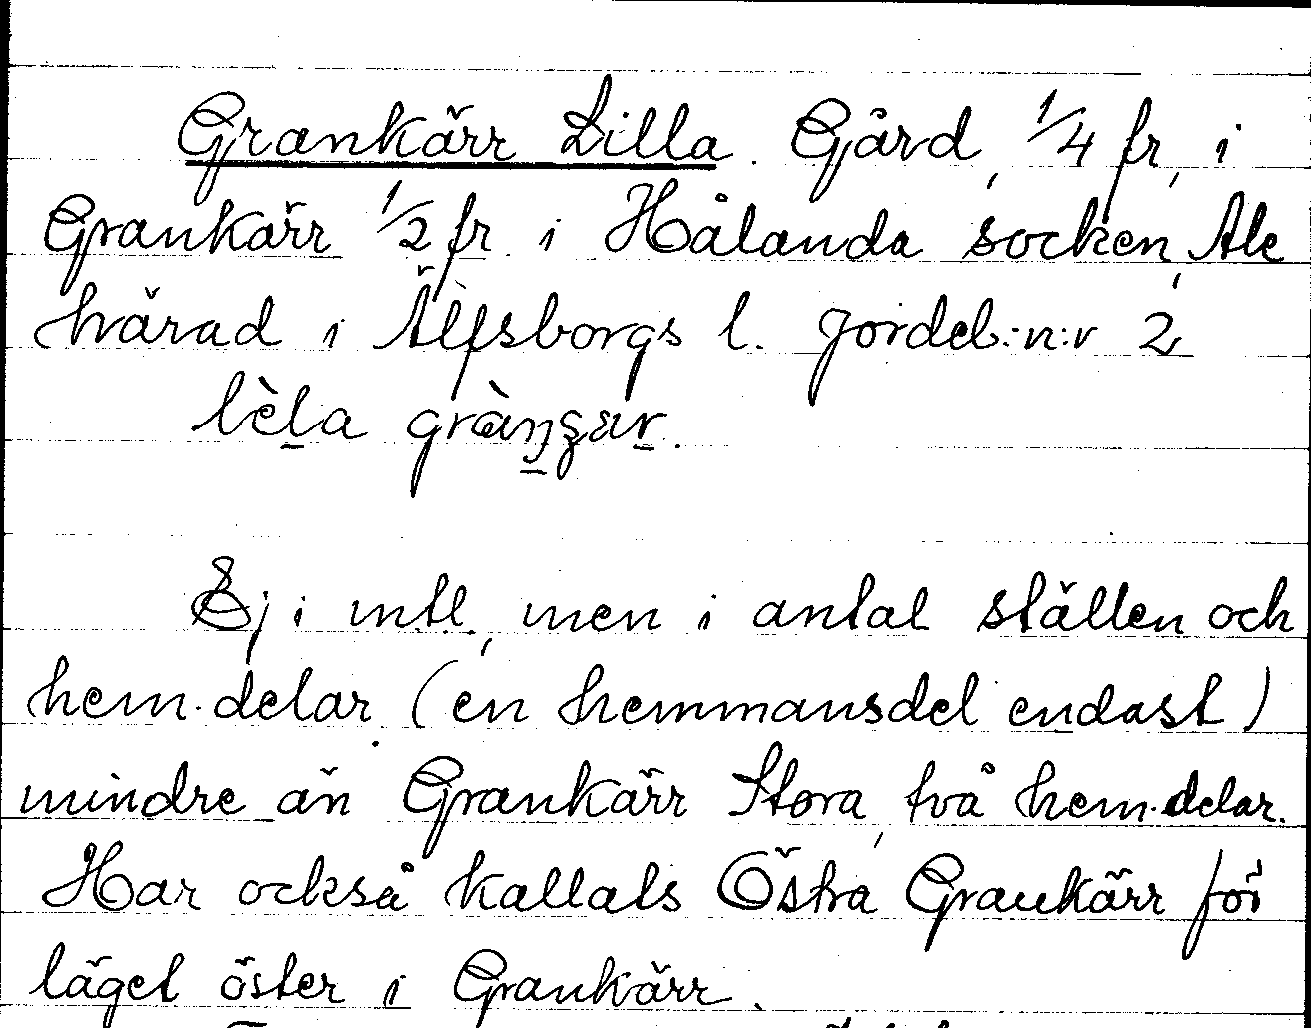 Grankärr Lilla. Gård, 1/4 fr, i
Grankärr 1/2 fr i Hålanda socken, Ale
härad i Älfsborgs l. Jordeb:n:r 2,
lèla grànʒar.
Ej i mtl, men i antal ställen och
hem.delar (en hemmansdel endast)
mindre än Grankärr Stora, två hem.delar.
Har också kallats Östra Grankärr för
läget öster i Grankärr.